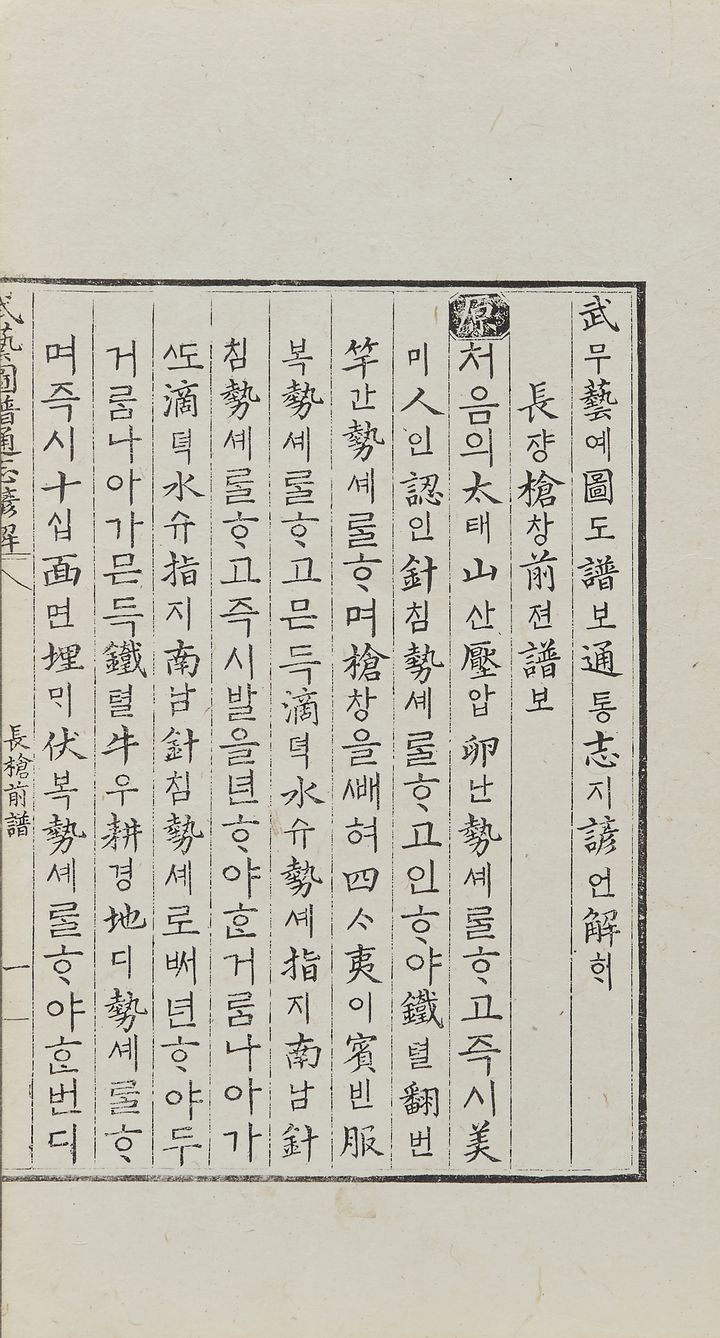 武무藝예圖도譜보通통志지諺언解ᄒᆡ
長쟝槍창前젼譜보
原
처음의太태山산壓압卵난勢셰ᄅᆞᆯᄒᆞ고즉시美
미人인認인針침勢셰ᄅᆞᆯᄒᆞ고인ᄒᆞ야鐵텰翻번
竿간勢셰ᄅᆞᆯᄒᆞ며槍창을ᄲᅢ혀四ᄉᆞ夷이賓빈服
복勢셰ᄅᆞᆯᄒᆞ고믄득滴뎍水슈勢셰指지南남針
침勢셰ᄅᆞᆯᄒᆞ고즉시발을년ᄒᆞ야ᄒᆞᆫ거롬나아가
ᄯᅩ滴뎍水슈指지南남針침勢셰로ᄡᅥ년ᄒᆞ야두
거롬나아가믄득鐵텰牛우耕경地디勢셰ᄅᆞᆯᄒᆞ
며즉시十십面면埋ᄆᆡ伏복勢셰ᄅᆞᆯᄒᆞ야ᄒᆞᆫ번디
武藝圖譜通志諺解
長槍前譜
一